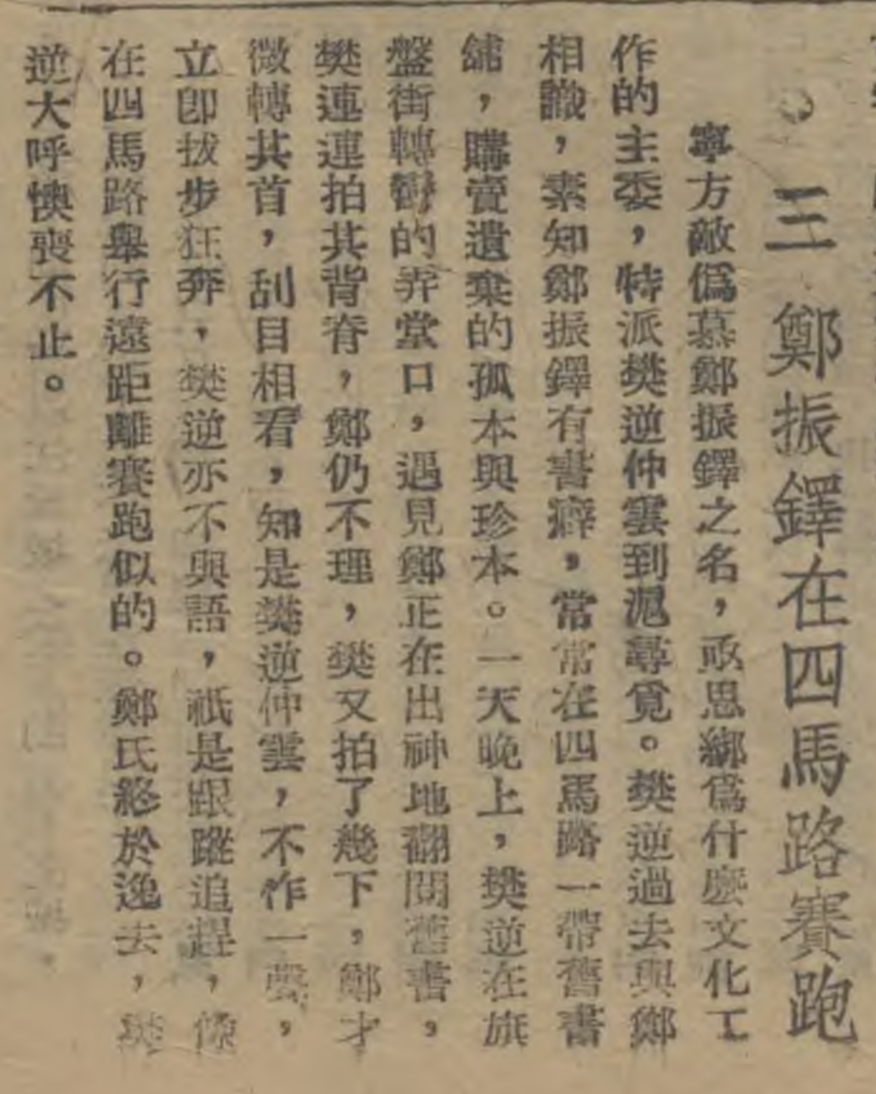 三 鄭振鐸在四馬路賽跑
寧方敵僞慕鄭振鐸之名，亟思綁爲什麼文化工
作的主委，特派樊逆仲雲到滬尋覓。樊逆過去與鄭
相識，素知鄭振鐸有書癖，常常在四馬路一帶舊書
舖，購賣遺棄的孤本與珍本。一天晚上，樊逆在旗
盤街轉彎的弄堂口，遇見鄭正在出神地翻閱舊書，
樊連連拍其背脊，鄭仍不理，樊又拍了幾下，鄭才
微轉其首，刮目相看，知是樊逆仲雲，不作一聲，
立卽拔步狂奔，樊逆亦不與語，祇是跟蹤追趕，像
在四馬路舉行遠距離賽跑似的。鄭氏終於逸去，樊
逆大呼懊喪不止。